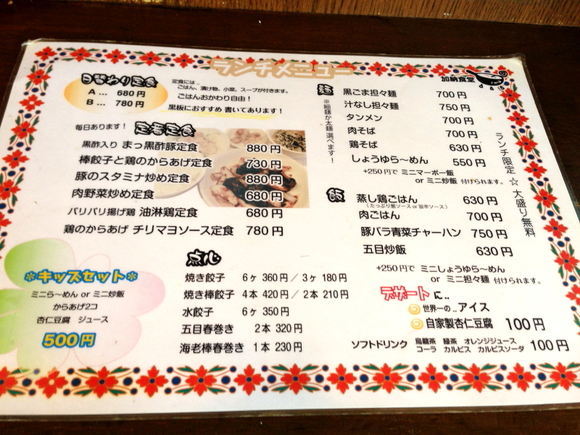 ランチメニュー
加納食堂
日替わり定食
A … 680円
B … 780円
定食には…
ごはん、漬け物、小菜、スープが付きます。
ごはんおかわり自由！
黒板におすすめ書いてあります！
毎日あります！ 定番定食
黒酢入り まっ黒酢豚定食 880円
棒餃子と鶏のからあげ定食 730円
豚のスタミナ炒め定食 880円
肉野菜炒め定食 680円
パリパリ揚げ鶏 油淋鶏定食 680円
鶏のからあげ チリマヨソース定食 780円
キッズセット
ミニら～めん or ミニ炒飯
からあげ2コ
杏仁豆腐 ジュース
500円
点心
焼き餃子 6ヶ 360円／3ヶ 180円
焼き棒餃子 4本 420円／2本 210円
水餃子 6ヶ 350円
五目春巻き 2本 320円
海老棒春巻き 1本 230円
麺
※細麺か太麺選べます！
黒ごま担々麺 700円
汁なし担々麺 750円
タンメン 700円
肉そば 700円
鶏そば 630円
しょうゆら～めん 550円
+250円で ミニマーボー飯
or ミニ炒飯 付けられます。
ランチ限定☆大盛り無料
飯
蒸し鶏ごはん 630円
肉ごはん 700円
豚バラ青菜チャーハン 750円
五目炒飯 630円
+250円で ミニしょうゆら～めん
or ミニ担々麺 付けられます。
デザートに..
世界一の..アイス
自家製杏仁豆腐 100円
ソフトドリンク 烏龍茶 緑茶 オレンジジュース
コーラ カルピス カルピスソーダ 100円